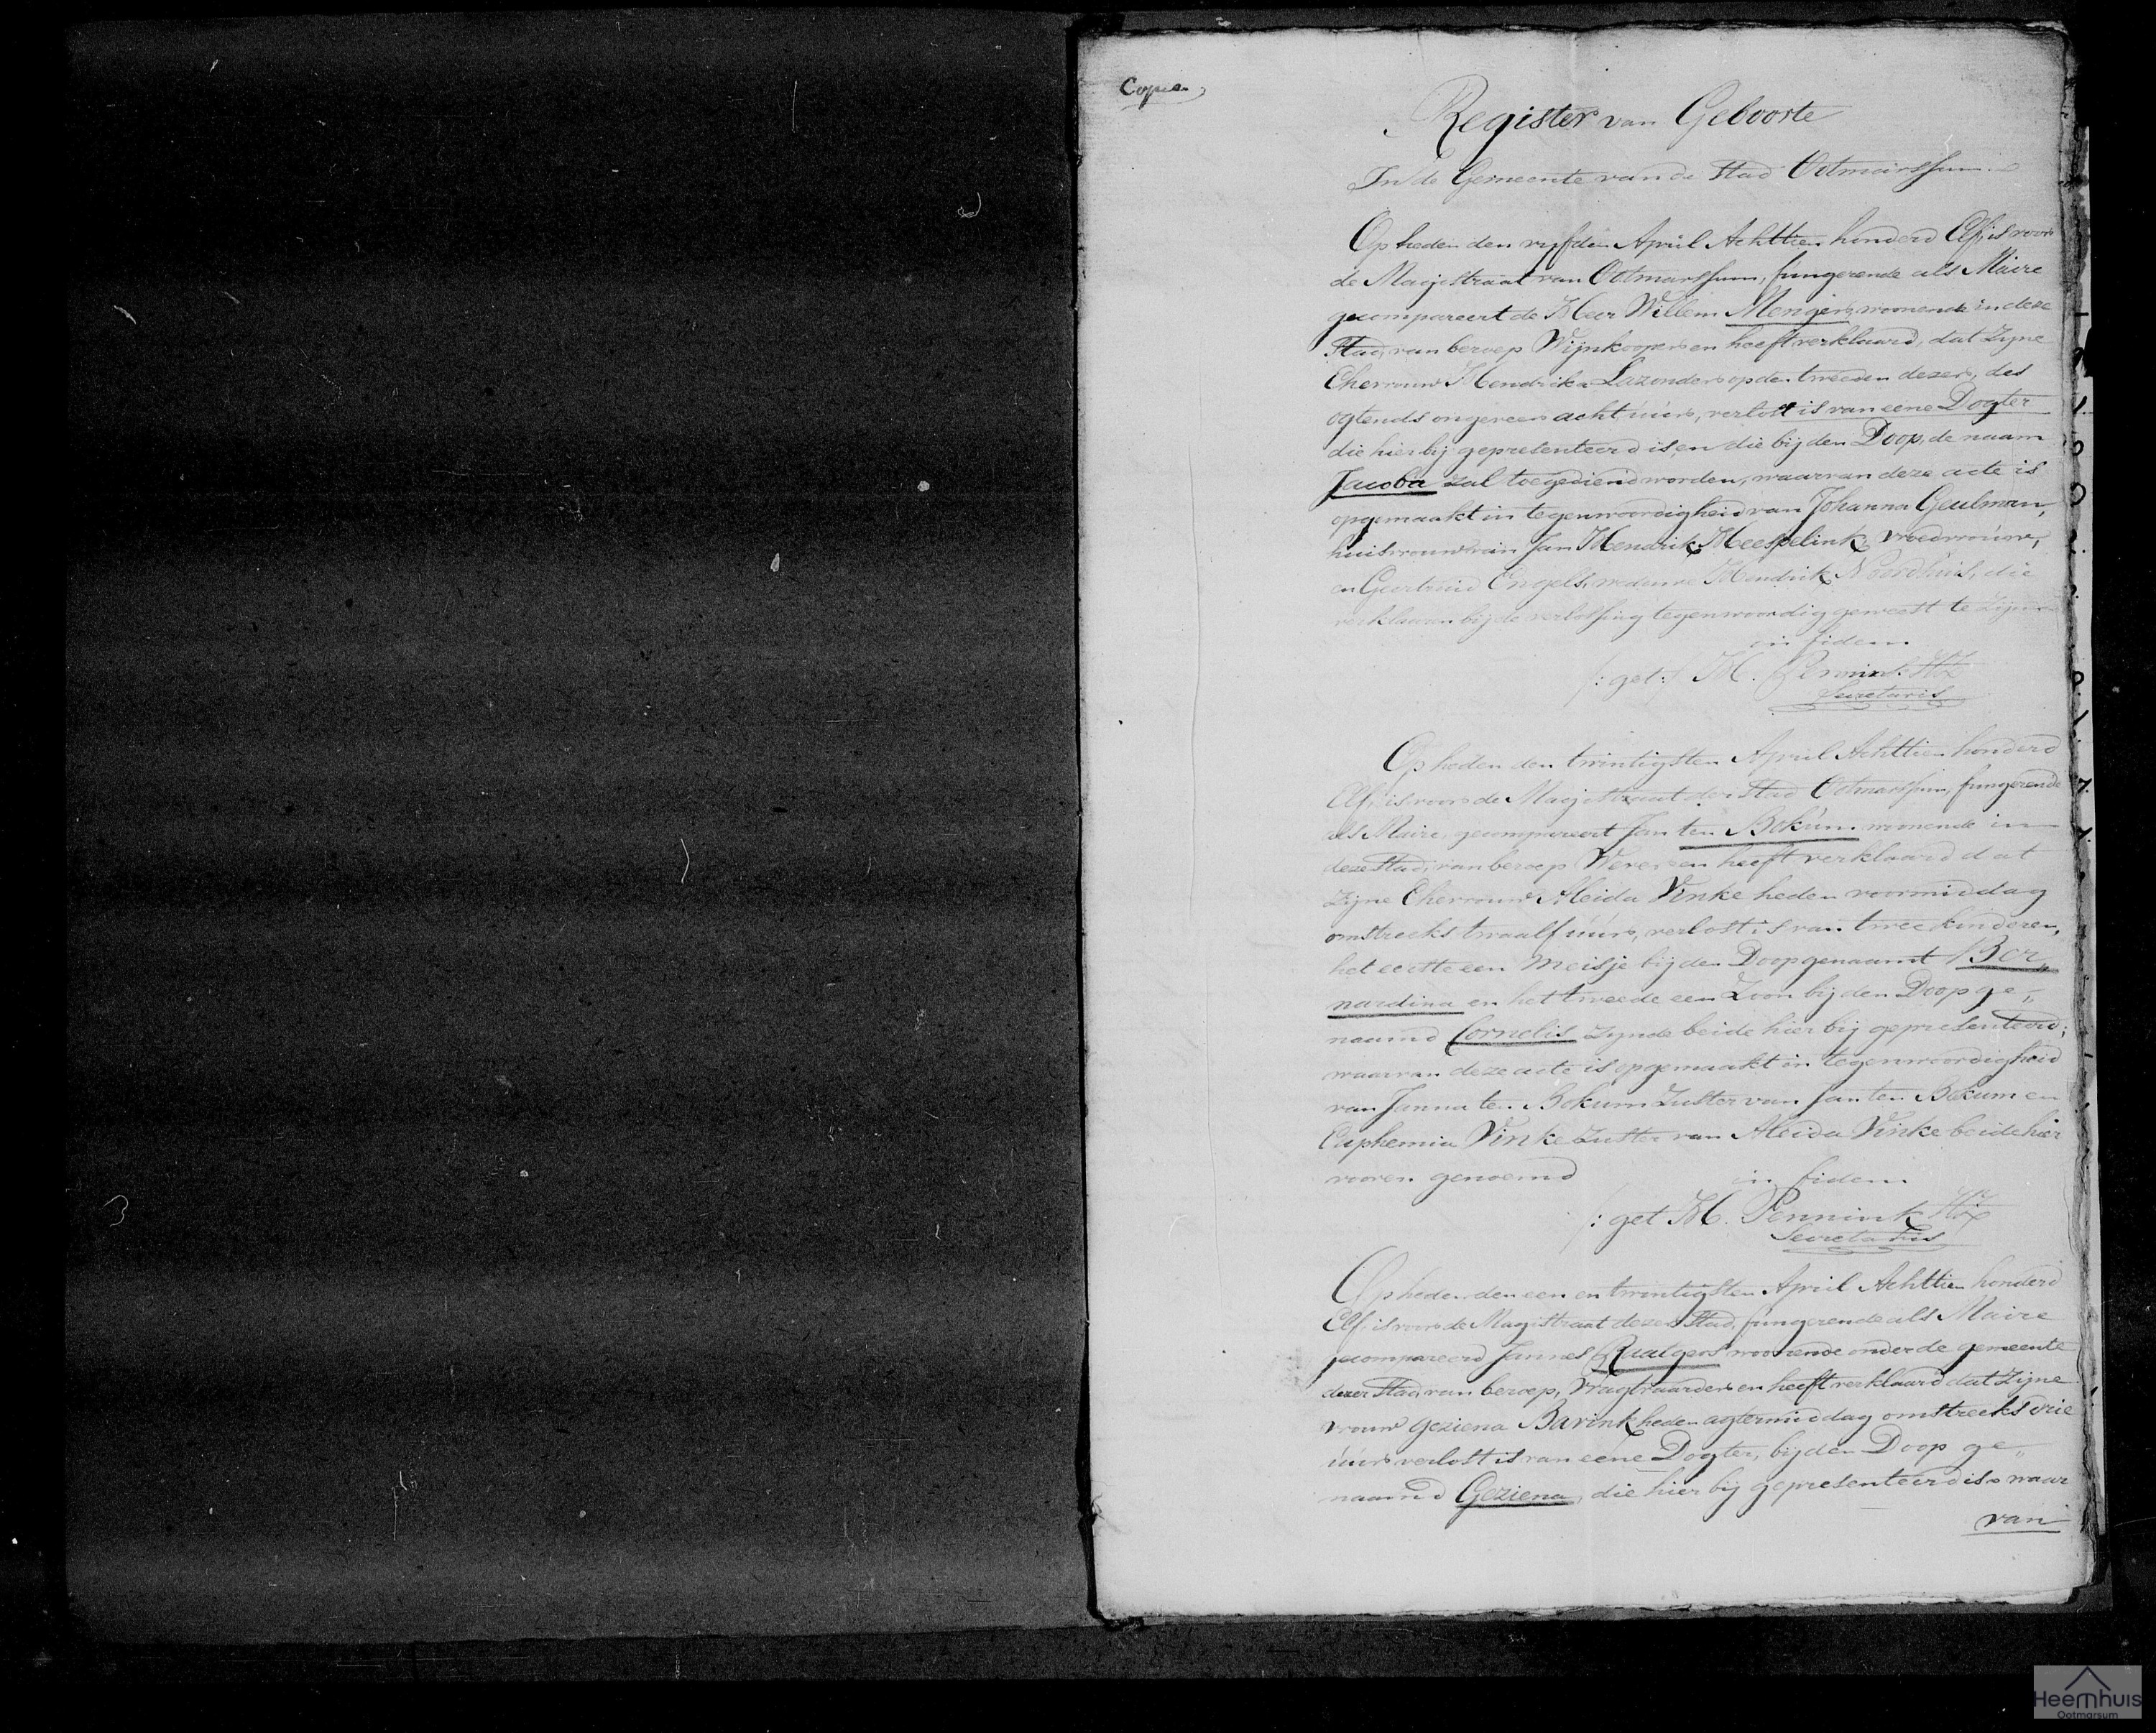 Copia
Register van Geboorte
In de Gemeente van de Stad Ootmarssum
Op heden den vyfden April Achttien honderd Elf, is voor
de Magistraat van Ootmarssum, fungerende als Maire
gecompareert de Heer Willem Menger, woonende in deze
Stad, van beroep Wijnkooper en heeft verklaard, dat Zyne
Ehevrouw Hendrika Lazonder op den tweeden dezer, des
ogtends ongeveer acht úúr, verlost is van eene Dogter
die hier bij gepresenteerd is, en die bij den Doop, de naam
Jacoba zal toegediend worden, waarvan deze acte is
opgemaakt in tegenwoordigheid van Johanna Geulman,
huisvrouw van Jan Hendrik Heespelink, vroedvroúw,
en Geertruid Engels, weduwe Hendrik Noordhuis, die
verklaaren bij de verlossing tegenwoordig geweest te zijn
in fidem
/: get: H. Pennink Hz
Secretaris
Op heden den twintigsten April Achttien honderd
Elf, is voor de Magistraat der Stad Ootmarssum, fungerende
als Maire, gecompareert Jan ten Bokúm woonende in
deze Stad, van beroep Wever en heeft verklaard dat
Zijne Ehevrouw Aleida Vinke heden voormiddag
omstreeks twaalf úúr, verlost is van twee kinderen,
het eerste een meisje bij den Doop genaamt Ber„
nardina en het tweede een Zoon bij den Doop ge„
naamd Cornelis zynde beide hier bij gepresenteerd;
waarvan deze acte is opgemaakt in tegenwoordigheid
van Janna ten Bokum Zuster van Jan ten Bokum en
Euphemia Vinke Zuster van Aleida Vinke beide hier
vooren genoemd
in fidem
/: get H. Pennink Hz
Secretaris
Op heden den een en twintigsten April Achttien honderd
Elf, is voor de Magistraat dezer Stad, fungerende als Maire
gecompareerd Jannes woonende onder de gemeente
dezer Stad, van beroep, Vragtvaarder en heeft verklaard dat Zijne
vrouw Geziena Barink heden agtermiddag omstreeks drie
úúr verlost is van eene Dogter, bij den Doop ge„
naamd Geziena, die hier bij gepresenteerd is, waar
van
Heemhuis
Ootmarsum